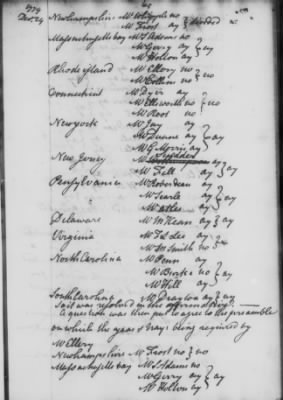 1779
Dec. 24
Newhampshire Mr Whipple no } divided
Mr Frost ay
Massachusetts bay Mr S Adams no
Mr Gerry ay } ay
Mr Holton ay
Rhode island Mr Ellery no } no
Mr Collins no
Connecticut Mr Dyer ay
Mr Ellsworth no } no
Mr Root no
New york Mr Jay ay
Mr Duane ay } ay
Mr G Morris ay
New Jersey Mr Scudder ay } ay
Mr Fell ay
Pensylvania Mr Roberdeau ay
Mr Searle ay } ay
Mr Atlee ay
Delaware Mr McKean ay } ay
Virginia Mr F L Lee ay
Mr M Smith no
North Carolina Mr Penn ay
Mr Burke no } ay
Mr Hill ay
South Carolina Mr Drayton ay } ay
So it was resolved in the affirmative
A question was then put to agree to the preamble
on which the yeas & nays being required by
Mr Ellery
Newhampshire Mr Frost no } no
Massachusetts bay Mr S Adams no
Mr Gerry ay } ay
Mr Holton ay